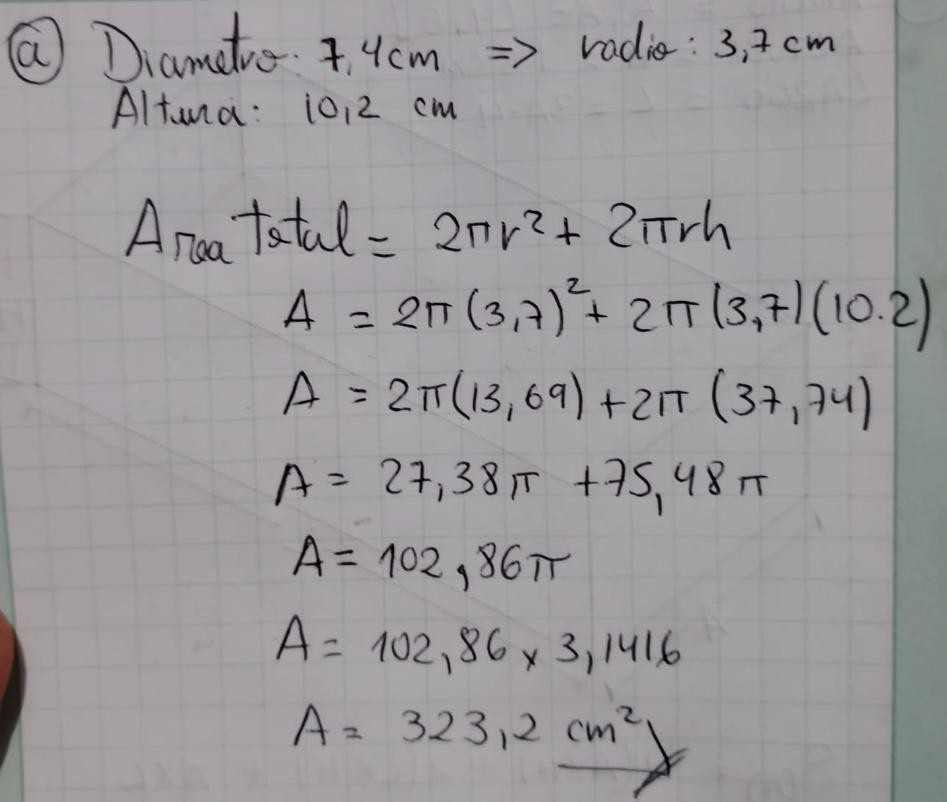 ⓐ Diametro: 7,4cm => radio: 3,7cm
Altura: 10,2 cm
Area total = 2πr² + 2πrh
A = 2π(3,7)² + 2π(3,7)(10.2)
A = 2π(13,69) + 2π (37,74)
A = 27,38π + 75,48π
A = 102,86π
A = 102,86 x 3,1416
A = 323,2 cm²